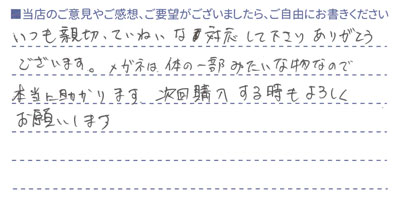 ■当店のご意見やご感想、ご要望がございましたら、ご自由にお書きください
いつも親切、ていねいな対応して下さりありがとう
ございます。メガネは体の一部みたいな物なので
本当に助かります 次回購入する時もよろしく
お願いします